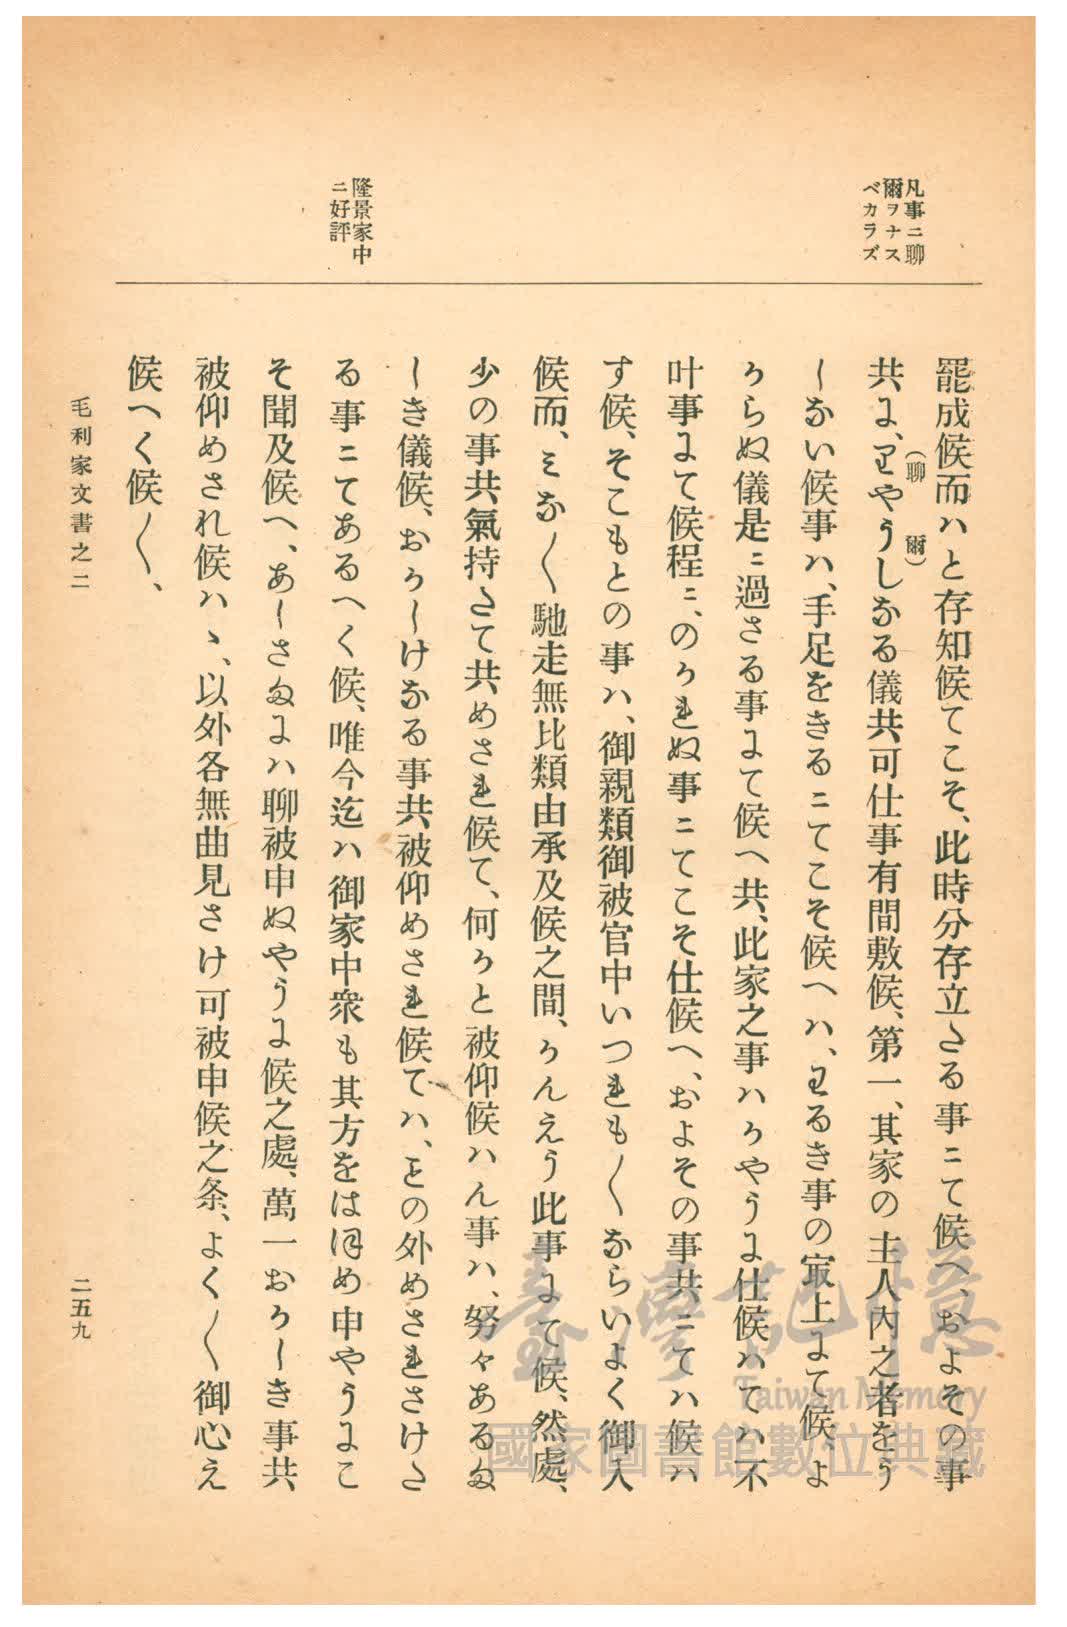 凡事ニ聊
爾ヲナス
ベカラズ
隆景家中
ニ好評
罷成候而ハと存知候てこそ、此時分存立たる事ニて候へ、およその事
共に、りやうしなる儀共可仕事有間敷候、第一、其家の主人内之者をう
(聊爾)
しない候事ハ、手足をきるニてこそ候へハ、わるき事の最上にて候、よ
からぬ儀是ニ過さる事にて候へ共、此家之事ハかやうに仕候ハてハ不
叶事にて候程ニ、のかれぬ事ニてこそ仕候へ、およその事共ニてハ候ハ
す候、そこもとの事ハ、御親類御被官中いつれも〳〵ならいよく御入
候而、ミな〳〵馳走無比類由承及候之間、かんえう此事にて候、然處、
少の事共氣持たて共めされ候て、何かと被仰候ハん事ハ、努々あるま
しき儀候、おかしけなる事共被仰めされ候てハ、もの外めされさけた
る事ニてあるへく候、唯今迄ハ御家中衆も其方をはほめ申やうにこ
そ聞及候へ、あしさまにハ聊被申ぬやうに候之處、萬一おかしき事共
被仰めされ候ハヽ、以外各無曲見さけ可被申候之条、よく〳〵御心え
候へく候〳〵、
毛利家文書之二
二五九
臺灣記憶
Taiwan Memory
國家圖書館數位典藏